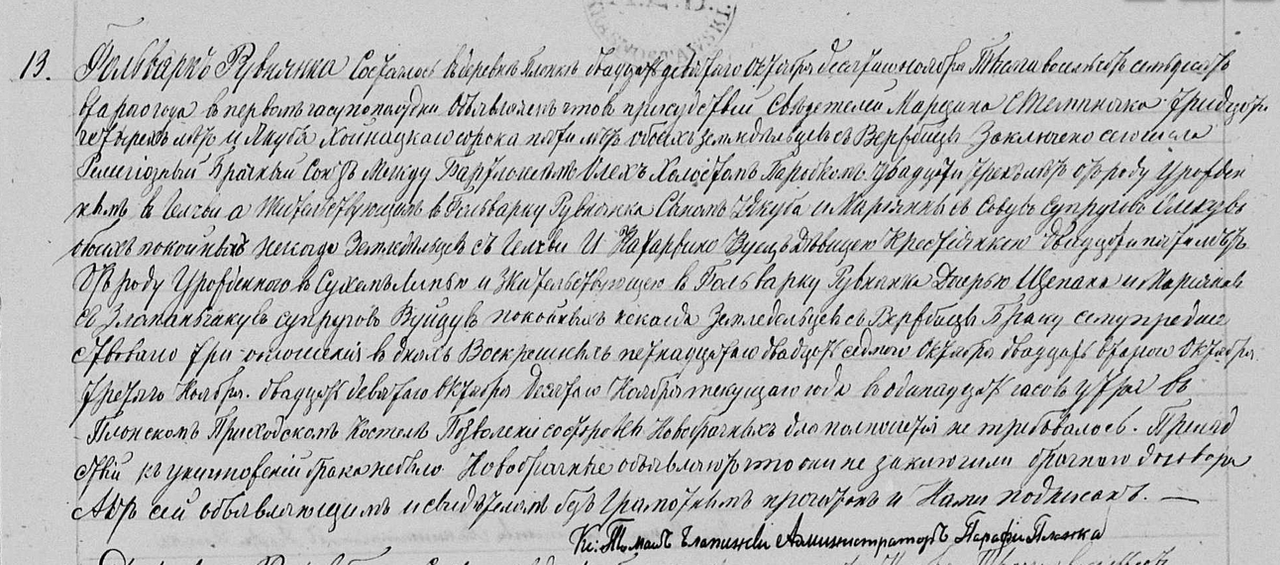 13. Фольваркъ Рувнянка Состоялось въ деревнѣ Плонкѣ двадцать девятаго Октября десятаго Ноября Тысяча восемьсотъ семьдесятъ
втораго года въ первомъ часу пополудни. Объявляемъ что въ присутствіи Свидѣтелей Марцина Стемпняка тридцати
четырехъ лѣтъ и Якуба Хойнацкаго сорока пяти лѣтъ обоихъ земледѣльцевъ съ Вержбицы Заключено сего числа
Религіозный Брачный Союзъ Между Бартломеемъ Олехъ Холостомъ Паробкомъ двадцати трехъ лѣтъ отъ роду Урожден
нымъ въ а Жительствующимъ въ Фольварку Рувнянка Сыномъ Якуба и Маріянны съ супруговъ Олехувъ
обоихъ покойныхъ некогда Земледѣльцевъ съ И Катаржиною Вуйцъ дѣвицею Крестьянкою двадцати пяти лѣтъ
Отъ роду Урожденною въ Сухемъ Липью и Жительствующею въ Фольварку Рувнянка Дочерью Щепана и Маріянны
съ супруговъ Вуйцувъ покойныхъ некогда Земледѣльцевъ съ Вержбицы Браку сему предше
ствовало три оглашенія въ дняхъ Воскресныхъ пятнадцатаго двадцать седмаго Октября двадцать втораго Октября
третяго Ноября. двадцать девятаго Октября десятаго Ноября текущаго года въ одинадцать часовъ утра въ
Плонскомъ Приходскомъ Костелѣ Позволеніи со стороны Новобрачныхъ дла полнолетія не требовалось. Препят
ствій къ брака небыло Новобрачные объявляютъ что они не заключили брачнаго договора
Актъ сей объявляющимъ и свидѣтелямъ безграмотнымъ прочитанъ и Нами подписанъ. —
Кс. Томашъ Администраторъ Парафіи Плонка